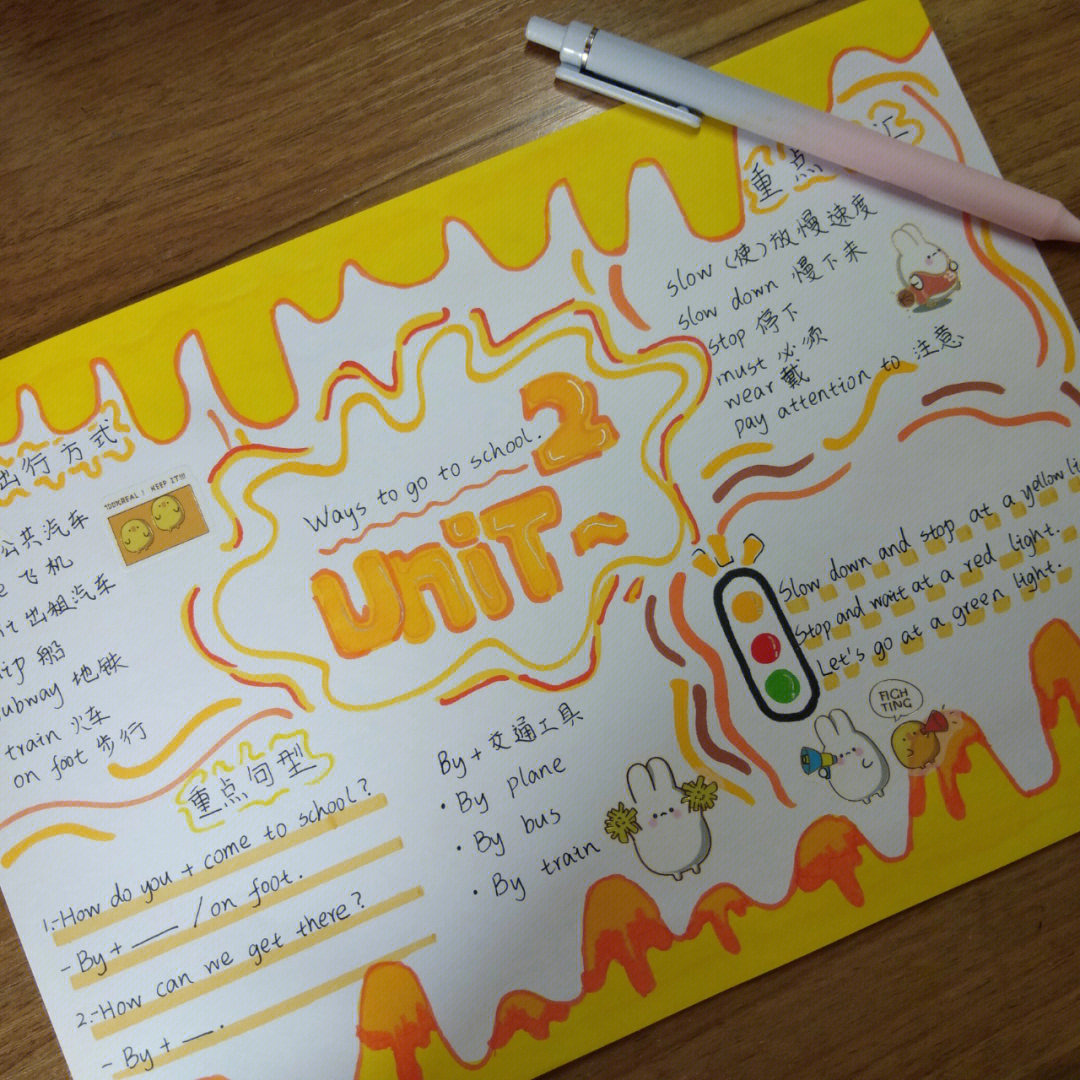 Ways to go to school.
UNIT 2
出行方式
公共汽车
飞机
出租汽车
船
subway 地铁
train 火车
on foot 步行
100%REAL! KEEP IT!!!
重点
slow (使)放慢速度
slow down 慢下来
stop 停下
must 必须
wear 戴
pay attention to 注意
Slow down and stop at a yellow
Stop and wait at a red light.
Let's go at a green light.
FIGHTING
重点句型
1.-How do you + come to school?
- By + — / on foot.
2.-How can we get there?
- By + —.
By + 交通工具
· By plane
· By bus
· By train